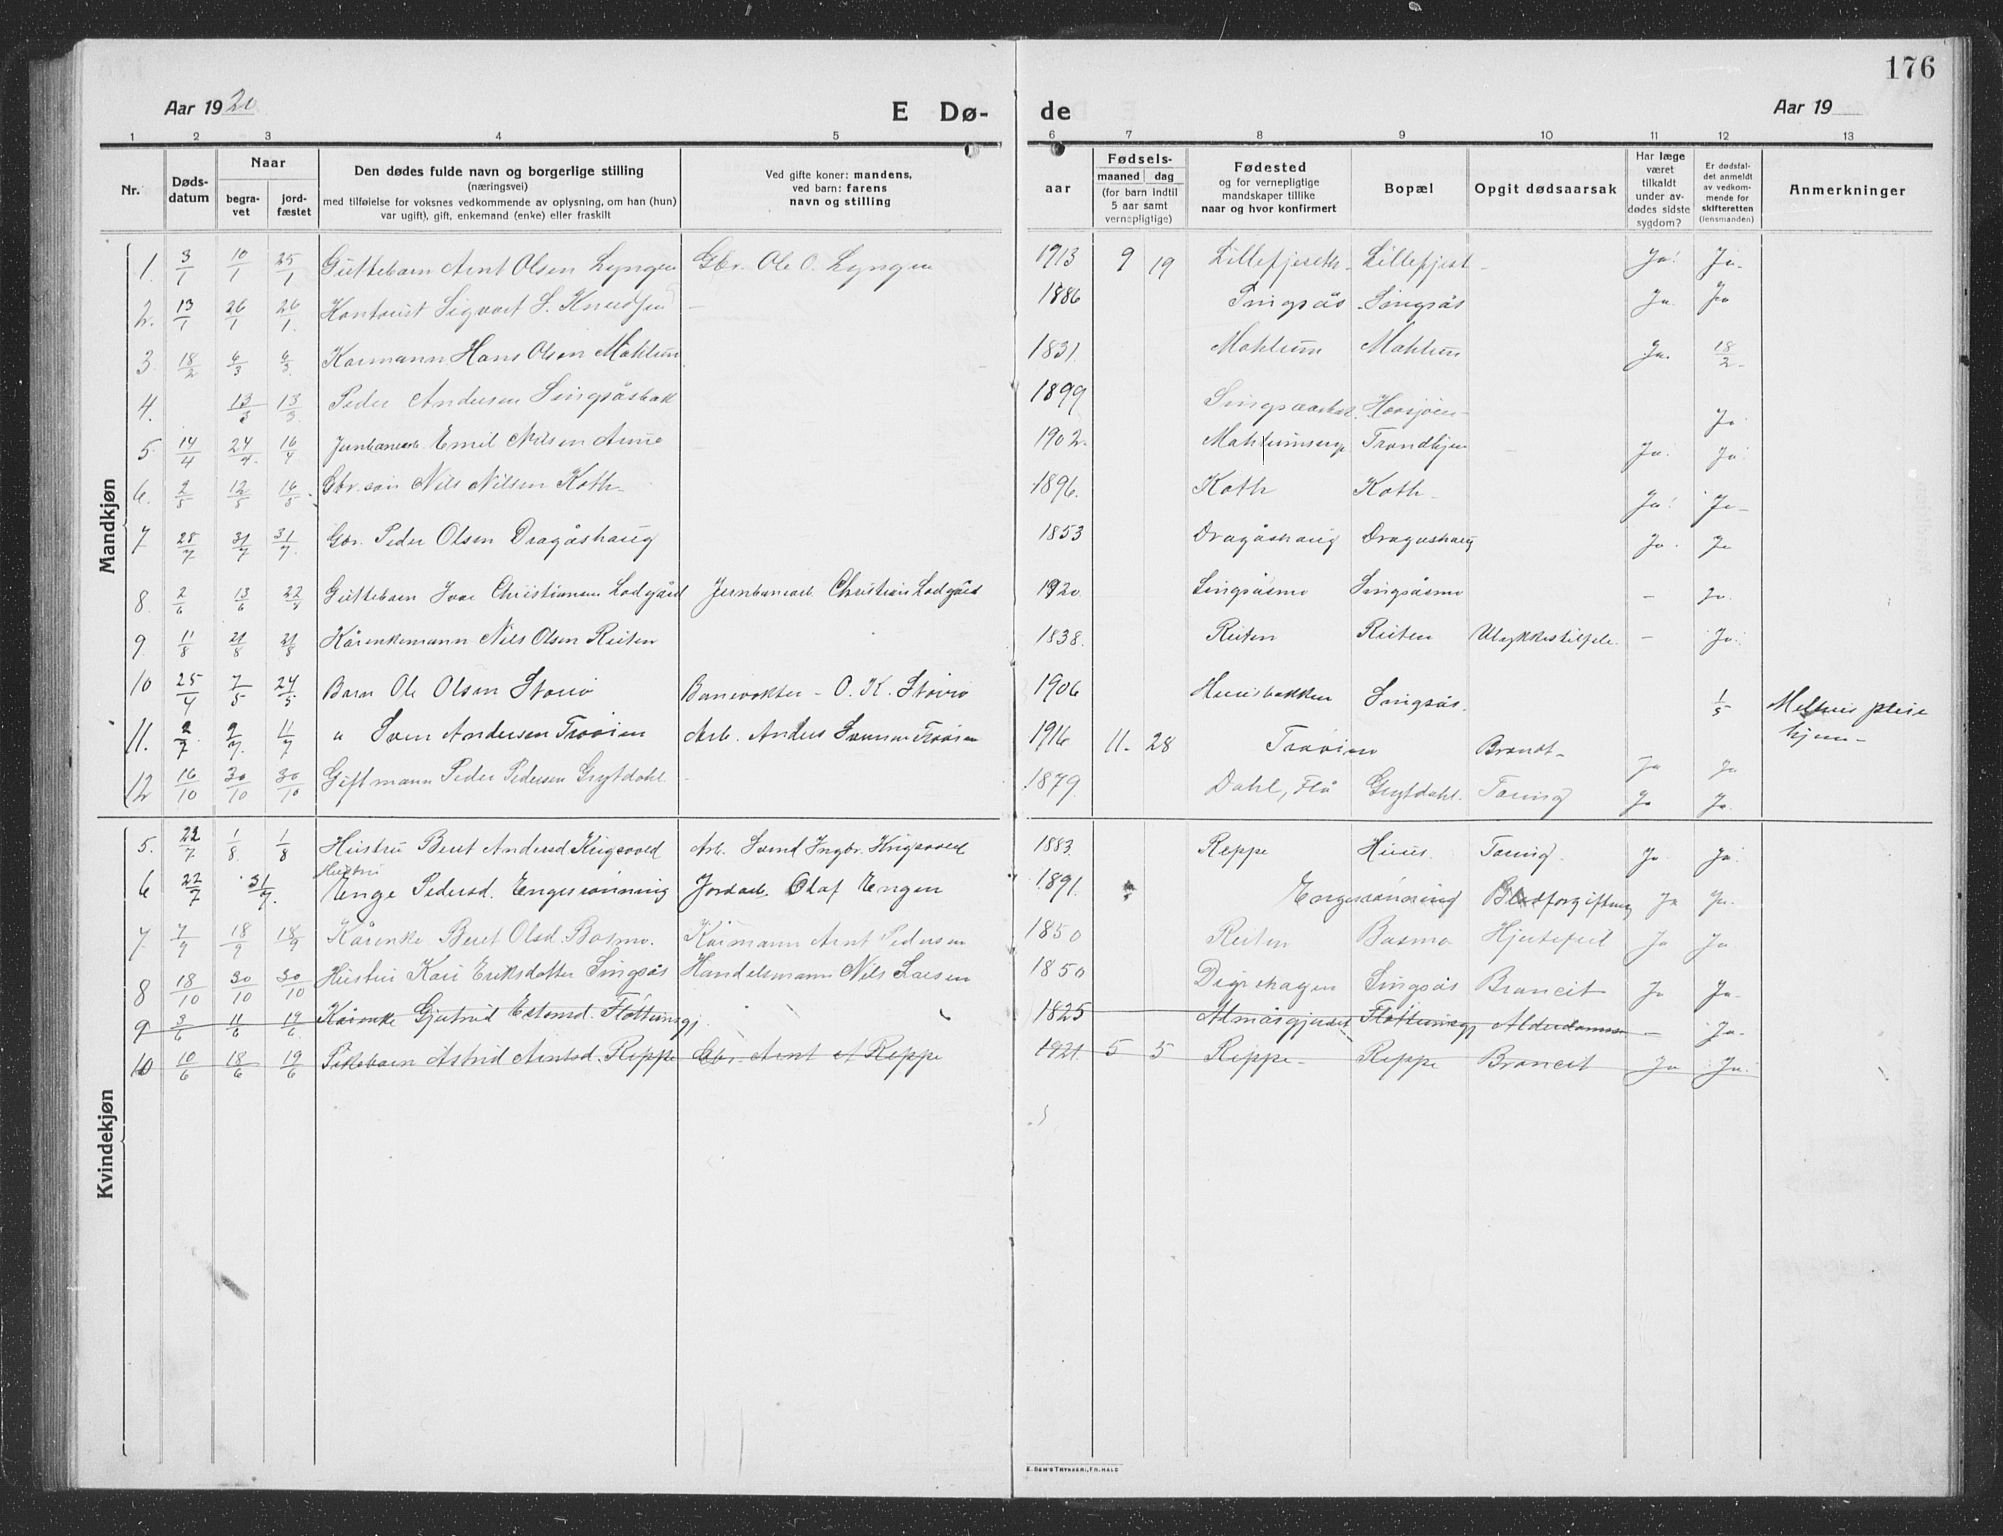 176
Aar 1920 E Dø- de Aar 19
1 2 3 4 5 6 7 8 9 10 11 12 13
Nr. Døds-datum Naar begra-vet jord-fæstet Den dødes fulde navn og borgerlige stilling (næringsvei) med tilføielse for voksnes vedkommende av oplysning, om han (hun) var ugift), gift, enkemand (enke) eller fraskilt Ved gifte koner: mandens, ved barn: farens navn og stilling aar Fødsels- maaned dag (for barn indtil 5 aar samt vernepligtige) Fødested og for vernepligtige mandskaper tillike naar og hvor konfirmert Bopæl Opgit dødsaarsak Har læge været tilkaldt under av-dødes sidste sygdom? Er dødsfal-det anmeldt av vedkom-mende for skifteretten (lensmanden) Anmerkninger
Mandkjøn
1. 3/1 10/1 25/1 Guttebarn Arnt Olsen Lyngen Gbr. Ole O. Lyngen 1913 9 19 Lillefjeseth Lillefjest - Ja! Ja.
2. 13/1 26/1 26/1. Kontorist Sigvart S. Knudsen - 1886 Singsås Singsås Ja. Ja
3. 18/2 6/3 6/3. Kårmann Hans Olsen Mohlum 1831. Mohlum Mohlum Ja. 18/2.
4. 13/3 13/3 Peder Andersen Singsåsbak 1899 Ja
5. 14/4 24/4. 16/4 Jernbanearb. Emil Nilsen Aune - 1902. Trondhjem Ja. Ja.
6. 2/5 12/5 16/5. Gbr.søn Nils Nilsen Koth 1896. Koth Koth Ja! Ja
7 28/7 31/7 31/7. Gbr. Peder Olsen Dragåshaug 1853 Dragåshaug Dragåshaug Ja. Ja
8. 2/6 13/6 Guttebarn Ivar Christiansen Lodgård Jernbanearb. Christian Lodgård 1920. Singsåsmo Singsåsmo - Ja.
9 11/8 21/8 21/8 Kårenkemann Nils Olsen Reiten 1838. Reiten Reiten Ulykkestilfele. - Ja.
10 25/4 7/5 24/5. Barn Ole Olsen Storrø Banevokter - O. K. Storrø 1906 Singsås. 1/5 pleie
hjem-
11. 2/7 9/7. 11/7 " Sven Andersen Troøien Arb. Anders Svensen Troøien 1916 11. 28 Troøien Brandt Ja Ja
12 16/10 30/10 30/10 Giftmann Peder Pedersen Grytdahl - 1879. Dahl, Flå Grytdahl. Tæring Ja Ja.
Kvindekjøn
5. 22/7 1/8 1/8 Hustru Beret Andersd Krigsvold Arb. Svend Ingbr. Krigsvold 1883. Reppe Huus. Tæring. Ja Ja.
6 22/7 31/7. Hustru Enge Pedersd. Engesrønning Jordarb. Olaf Engen 1891. Engesrønning Blodforgiftning Ja Ja.
7. 7/9 18/9 18/9 Kårenke Beret Olsd. Bosmo. Kårmann Arnt Pedersen 1850 Reiten Bosmo Hjertefeil Ja Ja.
8 18/10 30/10 30/10 Hustru Kari Eriksdotter Singsås Handelsmann Nils Larsen 1850 Digrehagen Singsås Broncit Ja Ja.
9 3/6 11/6 19/6 Kårenke Gjertrud Estensd. 1825 Alderdomm - Ja.
10 10/6 18/6 19/6 Pikebarn Astrid Arntsd. Reppe Gbr. Arnt Reppe 1921. 5 5 Reppe Reppe Broncit Ja Ja.
E. SEM'S TRYKKERI, FR.HALD